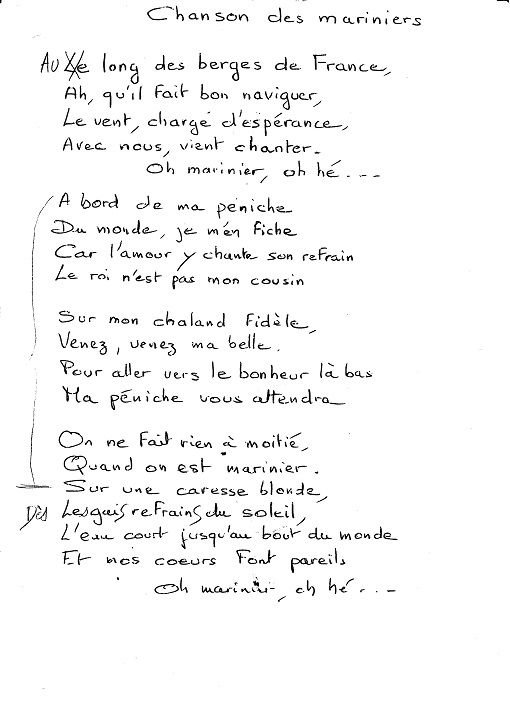 Chanson des mariniers
Au Le long des berges de France,
Ah, qu'il fait bon naviguer,
Le vent, chargé d'espérance,
Avec nous, vient chanter.
Oh marinier, oh hé...
A bord de ma péniche
Du monde, je m'en fiche
Car l'amour y chante son refrain
Le roi n'est pas mon cousin
Sur mon chaland fidèle,
Venez, venez ma belle.
Pour aller vers le bonheur là bas
Ma péniche vous attendra
On ne fait rien à moitié,
Quand on est marinier.
Sur une caresse blonde,
Dès Les gais refrains du soleil,
L'eau court jusqu'au bout du monde
Et nos coeurs font pareils
Oh marinier, oh hé...